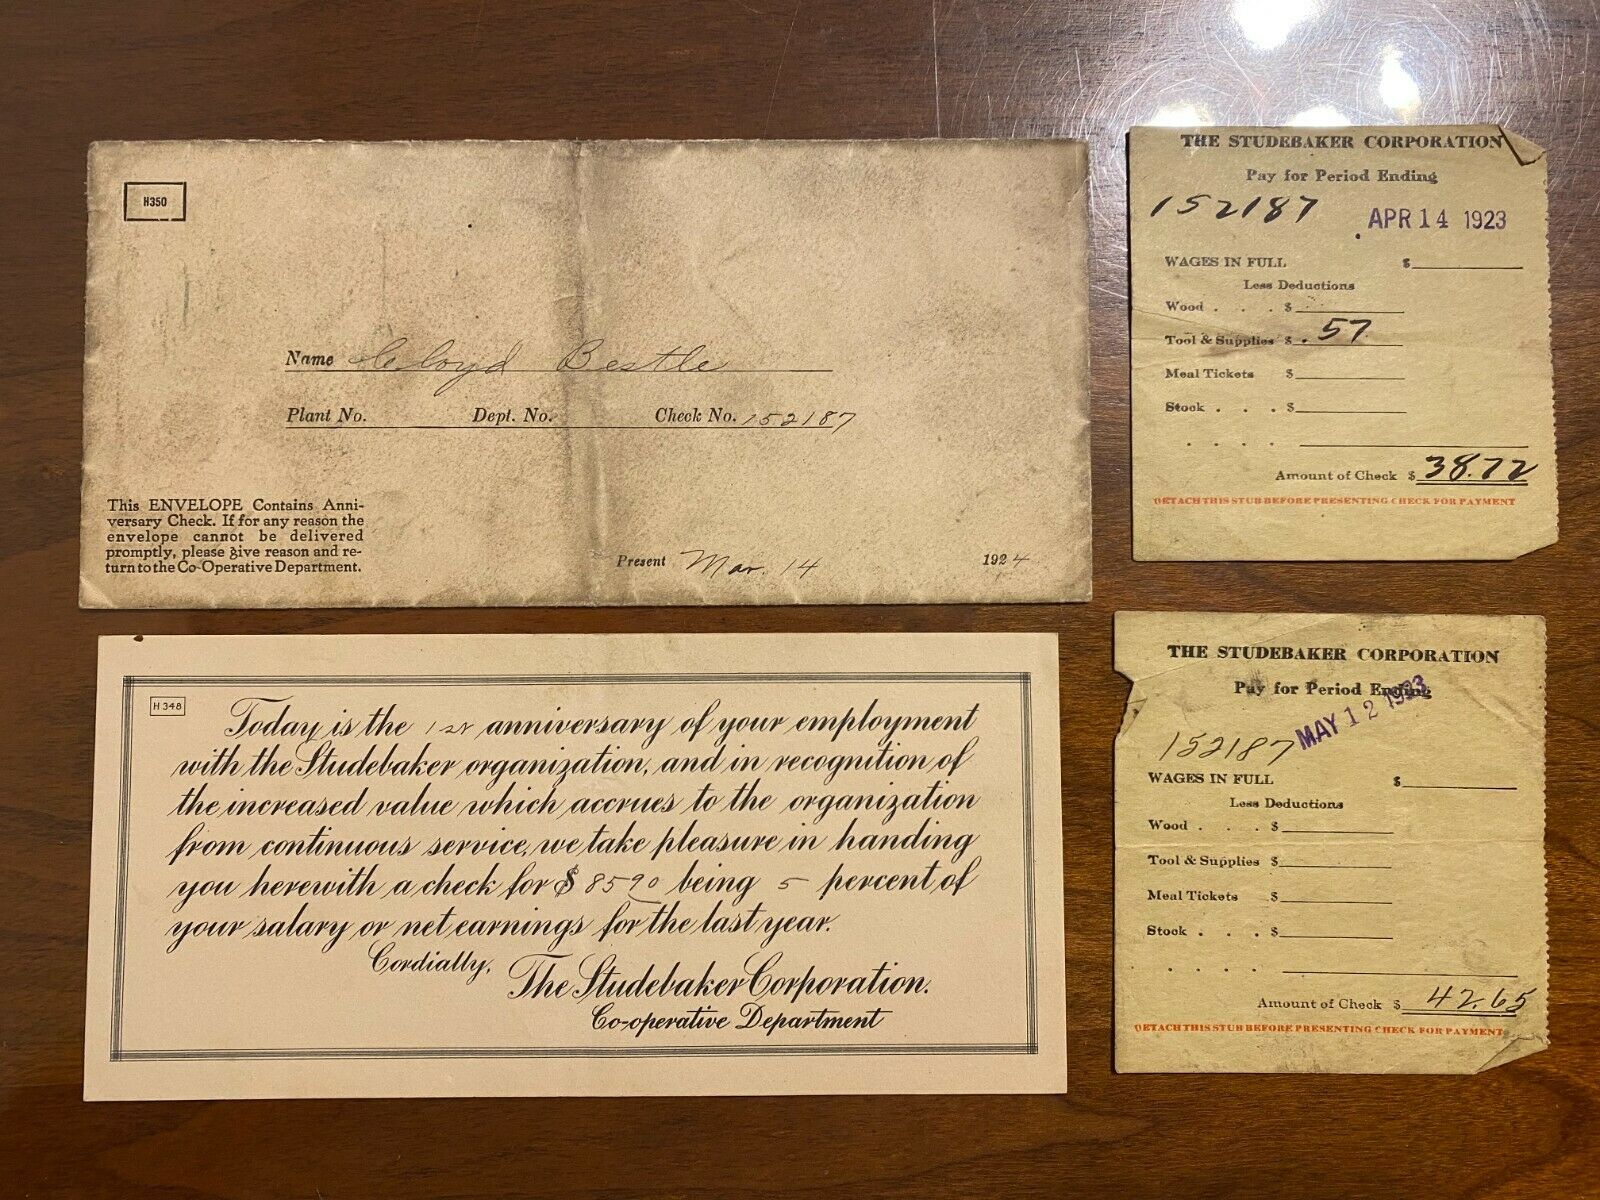 H350
Name Cloyd Bestle
Plant No. Dept. No. Check No. 152187
This ENVELOPE Contains Anni-
versary Check. If for any reason the
envelope cannot be delivered
promptly, please give reason and re-
turn to the Co-Operative Department.
Present Mar. 14 1924
H 348
Today is the 1st anniversary of your employment
with the Studebaker organization, and in recognition of
the increased value which accrues to the organization
from continuous service, we take pleasure in handing
you herewith a check for $ 85 90 being 5 percent of
your salary or net earnings for the last year.
Cordially,
The Studebaker Corporation.
Co-operative Department
THE STUDEBAKER CORPORATION
Pay for Period Ending
152187 APR 14 1923
WAGES IN FULL $
Less Deductions
Wood . . . $
Tool & Supplies $ .57
Meal Tickets $
Stock . . . $
. . . .
Amount of Check $ 38.72
DETACH THIS STUB BEFORE PRESENTING CHECK FOR PAYMENT
THE STUDEBAKER CORPORATION
Pay for Period Ending
152187 MAY 12 1923
WAGES IN FULL $
Less Deductions
Wood . . . $
Tool & Supplies $
Meal Tickets $
Stock . . . $
. . . .
Amount of Check $ 42.65
DETACH THIS STUB BEFORE PRESENTING CHECK FOR PAYMENT